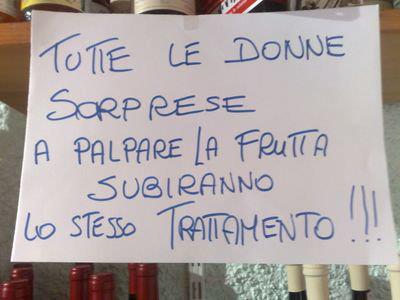 TUTTE LE DONNE
SORPRESE
A PALPARE LA FRUTTA
SUBIRANNO
LO STESSO TRATTAMENTO!!!